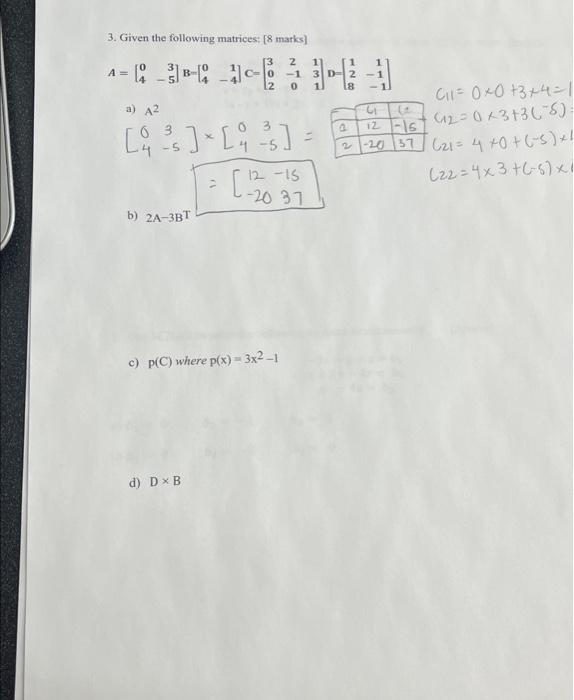 3. Given the following matrices: [8 marks]
A = [0 3 B=[0 1 C=[3 2 1 D=[1 1
4 −5] 4 −4] 0 −1 3 2 −1
2 0 1] 8 −1]
a) A²
[0 3 × [0 3 =
4 -5] 4 -5]
C1 C2
2 12 -15
2 -20 37
C11 = 0×0+3×4=1
C12 = 0×3+3(-5)=
C21 = 4×0+(-5)×
C22 = 4×3+(-5)×
= [12 -15
-20 37]
b) 2A−3Bᵀ
c) p(C) where p(x) = 3x² −1
d) D × B